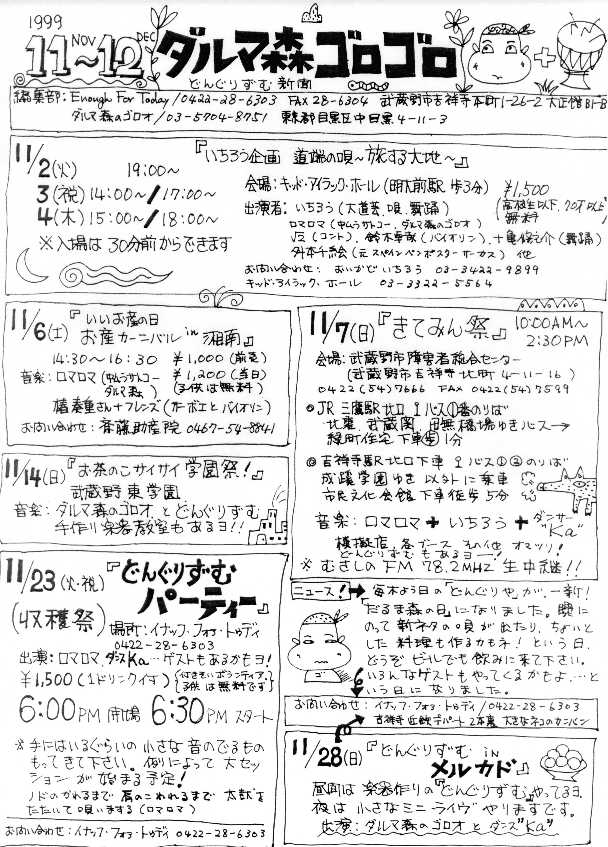 1999
11 NOV 〜 12 DEC ダルマ森ゴロゴロ
どんぐりずむ新聞
編集部：Enough For Today /0422-28-6303 FAX 28-6304 武蔵野市吉祥寺本町1-26-2 大正館B1-B
ダルマ森のゴロオ /03-5704-8751 東京都目黒区中目黒4-11-3
11/2(火) 19:00〜
3(祝) 14:00〜/17:00〜
4(木) 15:00〜/18:00〜
※入場は30分前からできます
『いちろう企画 道端の唄〜旅する大地〜』
会場：キッド・アイラック・ホール (明大前駅 歩3分)
¥1,500
(高校生以下、70才以上 無料)
出演者：いちろう (大道芸、唄、舞踊)
ロマロマ (中ムラサトコー、ダルマ森のゴロオ)
√2 (コント)、鈴木幸哉 (バイオリン)、十亀脩之介 (舞踊)
外本千絵 (元スペインペンポスターサーカス) 他
お問い合わせ：おいかどいちろう 03-3422-9899
キッド・アイラック・ホール 03-3322-5564
11/6(土) 『いいお産の日
お産カーニバル in 湘南』
14:30〜16:30 ¥1,000 (前売)
¥1,200 (当日)
(子供は無料)
音楽：ロマロマ (中ムラサトコー ダルマ森)
橘春童さん+フレンズ (オーボエとバイオリン)
お問い合わせ：斉藤助産院 0467-54-8841
11/7(日) 『きてみん祭』 10:00AM〜
2:30PM
会場：武蔵野市障害者総合センター
(武蔵野市吉祥寺北町4-11-16)
0422(54)7666 FAX 0422(54)7599
◎JR 三鷹駅北口 バス①番のりば
北裏 武蔵関、田無橋場ゆきバス→
緑町住宅 下車 1分
◎吉祥寺駅北口下車 バス①②のりば
成蹊学園ゆき以外に乗車
市民文化会館 下車徒歩5分
音楽：ロマロマ + いちろう + ダンサー "Ka"
模擬店、各ブース オマツリ！
どんぐりずむもあるヨー！
※むさしのFM 78.2MHZ 生中継!!
11/14(日) 『お茶のこサイサイ学園祭！』
武蔵野東学園
音楽：ダルマ森のゴロオとどんぐりずむ
手作り楽器教室もあるヨ!!
11/23(火・祝) 『どんぐりずむ
パーティー』
(収穫祭) 場所：イナッフ・フォ・トゥディ
0422-28-6303
出演：ロマロマ、ダンスKa、ゲストもあるかもヨ！
¥1,500 (1ドリンク付) (付きそいボランティア、子供は無料です)
6:00PM 開場 6:30PM スタート
※手にはいるぐらいの小さな音のでるもの
もってきて下さい。例によって大セッ
ションが始まる予定！
ノドのかれるまで 肩のこわれるまで 太鼓を
たたいて唄いまする (ロマロマ)
お問い合わせ：イナッフ・フォ・トゥディ 0422-28-6303
ニュース！→毎木よう日の「どんぐりや」が、一新！
「だるま森の日」になりました。興に
のって新ネタの唄が出たり、ちょいと
した料理も作るかもネ！という日、
どうぞビールでも飲みに来て下さい。
いろんなゲストもやってくるかもよ、…と
いう日になりました。
お問い合わせ：イナッフ・フォ・トゥディ /0422-28-6303
吉祥寺 近鉄デパート2本裏 大きなネコのカンバン
11/28(日) 『どんぐりずむ IN
メルカド』
昼間は楽器作りの「どんぐりずむ」やってるヨ。
夜は小さなミニライヴやりますです。
出演：ダルマ森のゴロオとダンス"Ka"